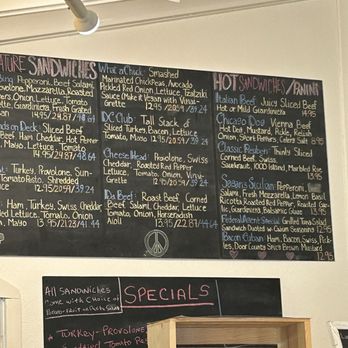 ATURE SANDWICHES
Pepperoni, Beef Salami,
Provolone, Mozzarella, Roasted
Onion, Lettuce, Tomato
te, Giardiniera, Fresh Grated
an. 14.95/24.87/48.69
nds on Deck: Sliced Beef
Beef, Ham, Cheddar, Hot Pepper
Mayo, Lettuce, Tomato
14.95/24.87/48.64
Turkey, Provolone, Sun-
Tomato Pesto, Shredded
12.95/20.59/39.24
Ham, Turkey, Swiss, Cheddar
Lettuce, Tomato, Onion
, Mayo. 13.95/21.23/41.44
What a Chick: Smashed
Marinated ChickPeas, Avocado
Pickled Red Onion, Lettuce, Tzatziki
Sauce (Make it Vegan with Vinai-
grette 12.95/20.59/39.24
DC Club: Tall Stack of
Sliced Turkey, Bacon, Lettuce
Tomato, Mayo. 12.95/20.59/39.24
CheeseHead: Provolone, Swiss
Cheddar, Hot Pepper, Roasted Red
Pepper, Tomato, Onion, Vinai-
Grette 12.95/20.59/39.24
Da Beef: Roast Beef, Corned
Beef, Salami, Cheddar, Lettuce
Tomato, Onion, Horseradish
Aioli 13.95/22.87/44.64
HOT SANDWICHES/PANINI
Italian Beef: Juicy Sliced Beef
Hot or Mild Giardiniera 12.95
Chicago Dog: Vienna Beef
Hot Dog, Mustard, Relish,
Onion, Sport Peppers, Celery Salt
Classic Reuben: Thinly Sliced
Corned Beef, Swiss,
Sauerkraut, 1000 Island, Marbled Rye
13.95
Sicilian: Pepperoni,
Fresh Mozzarella, Lemon Basil
Ricotta, Roasted Red Pepper, Roasted Gar-
lic, Giardiniera, Balsamic Glaze 13.95
Federal Agent Special: Grilled Tuna Salad
Sandwich Dusted w/ Cajun Seasoning 12.95
Bacon Cuban: Ham, Bacon, Swiss, Pick-
les, Door County Spicy Brown Mustard
12.95
All SANDWICHES
Come with Choice of
SPECIALS
★ TURKEY-PROVOLONE
Tomato Pes